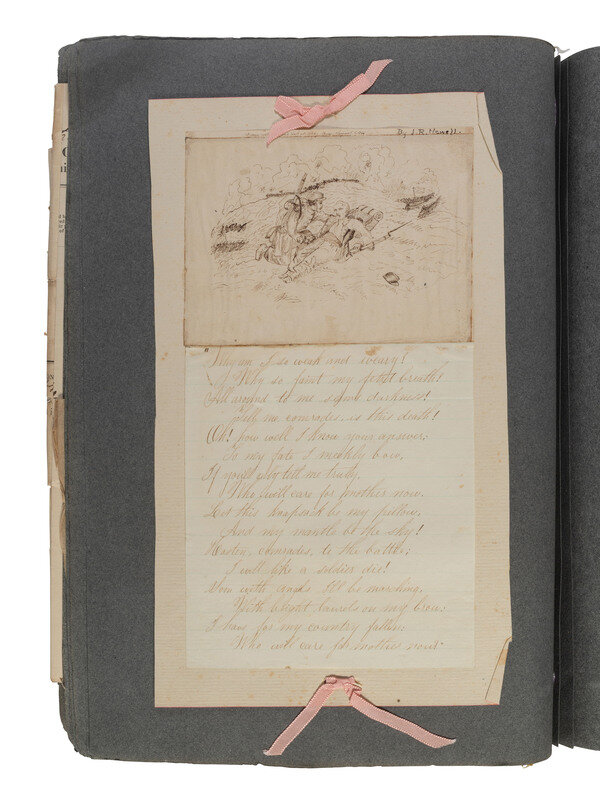 By J. R. Hamell.
"Why am I so weak and weary!
Why so faint my breath!
All around to me seems darkness!
Tell me comrades, is this death!
Ah! how well I know your answer;
To my fate I meekly bow,
If you'll only tell me truly,
Who will care for mother now.
Let this knapsack be my pillow,
And my mantle be the sky!
Hasten, comrades, to the battle;
I will like a soldier die!
Soon with angels I'll be marching,
With bright laurels on my brow;
I have for my country fallen:
Who will care for mother now"